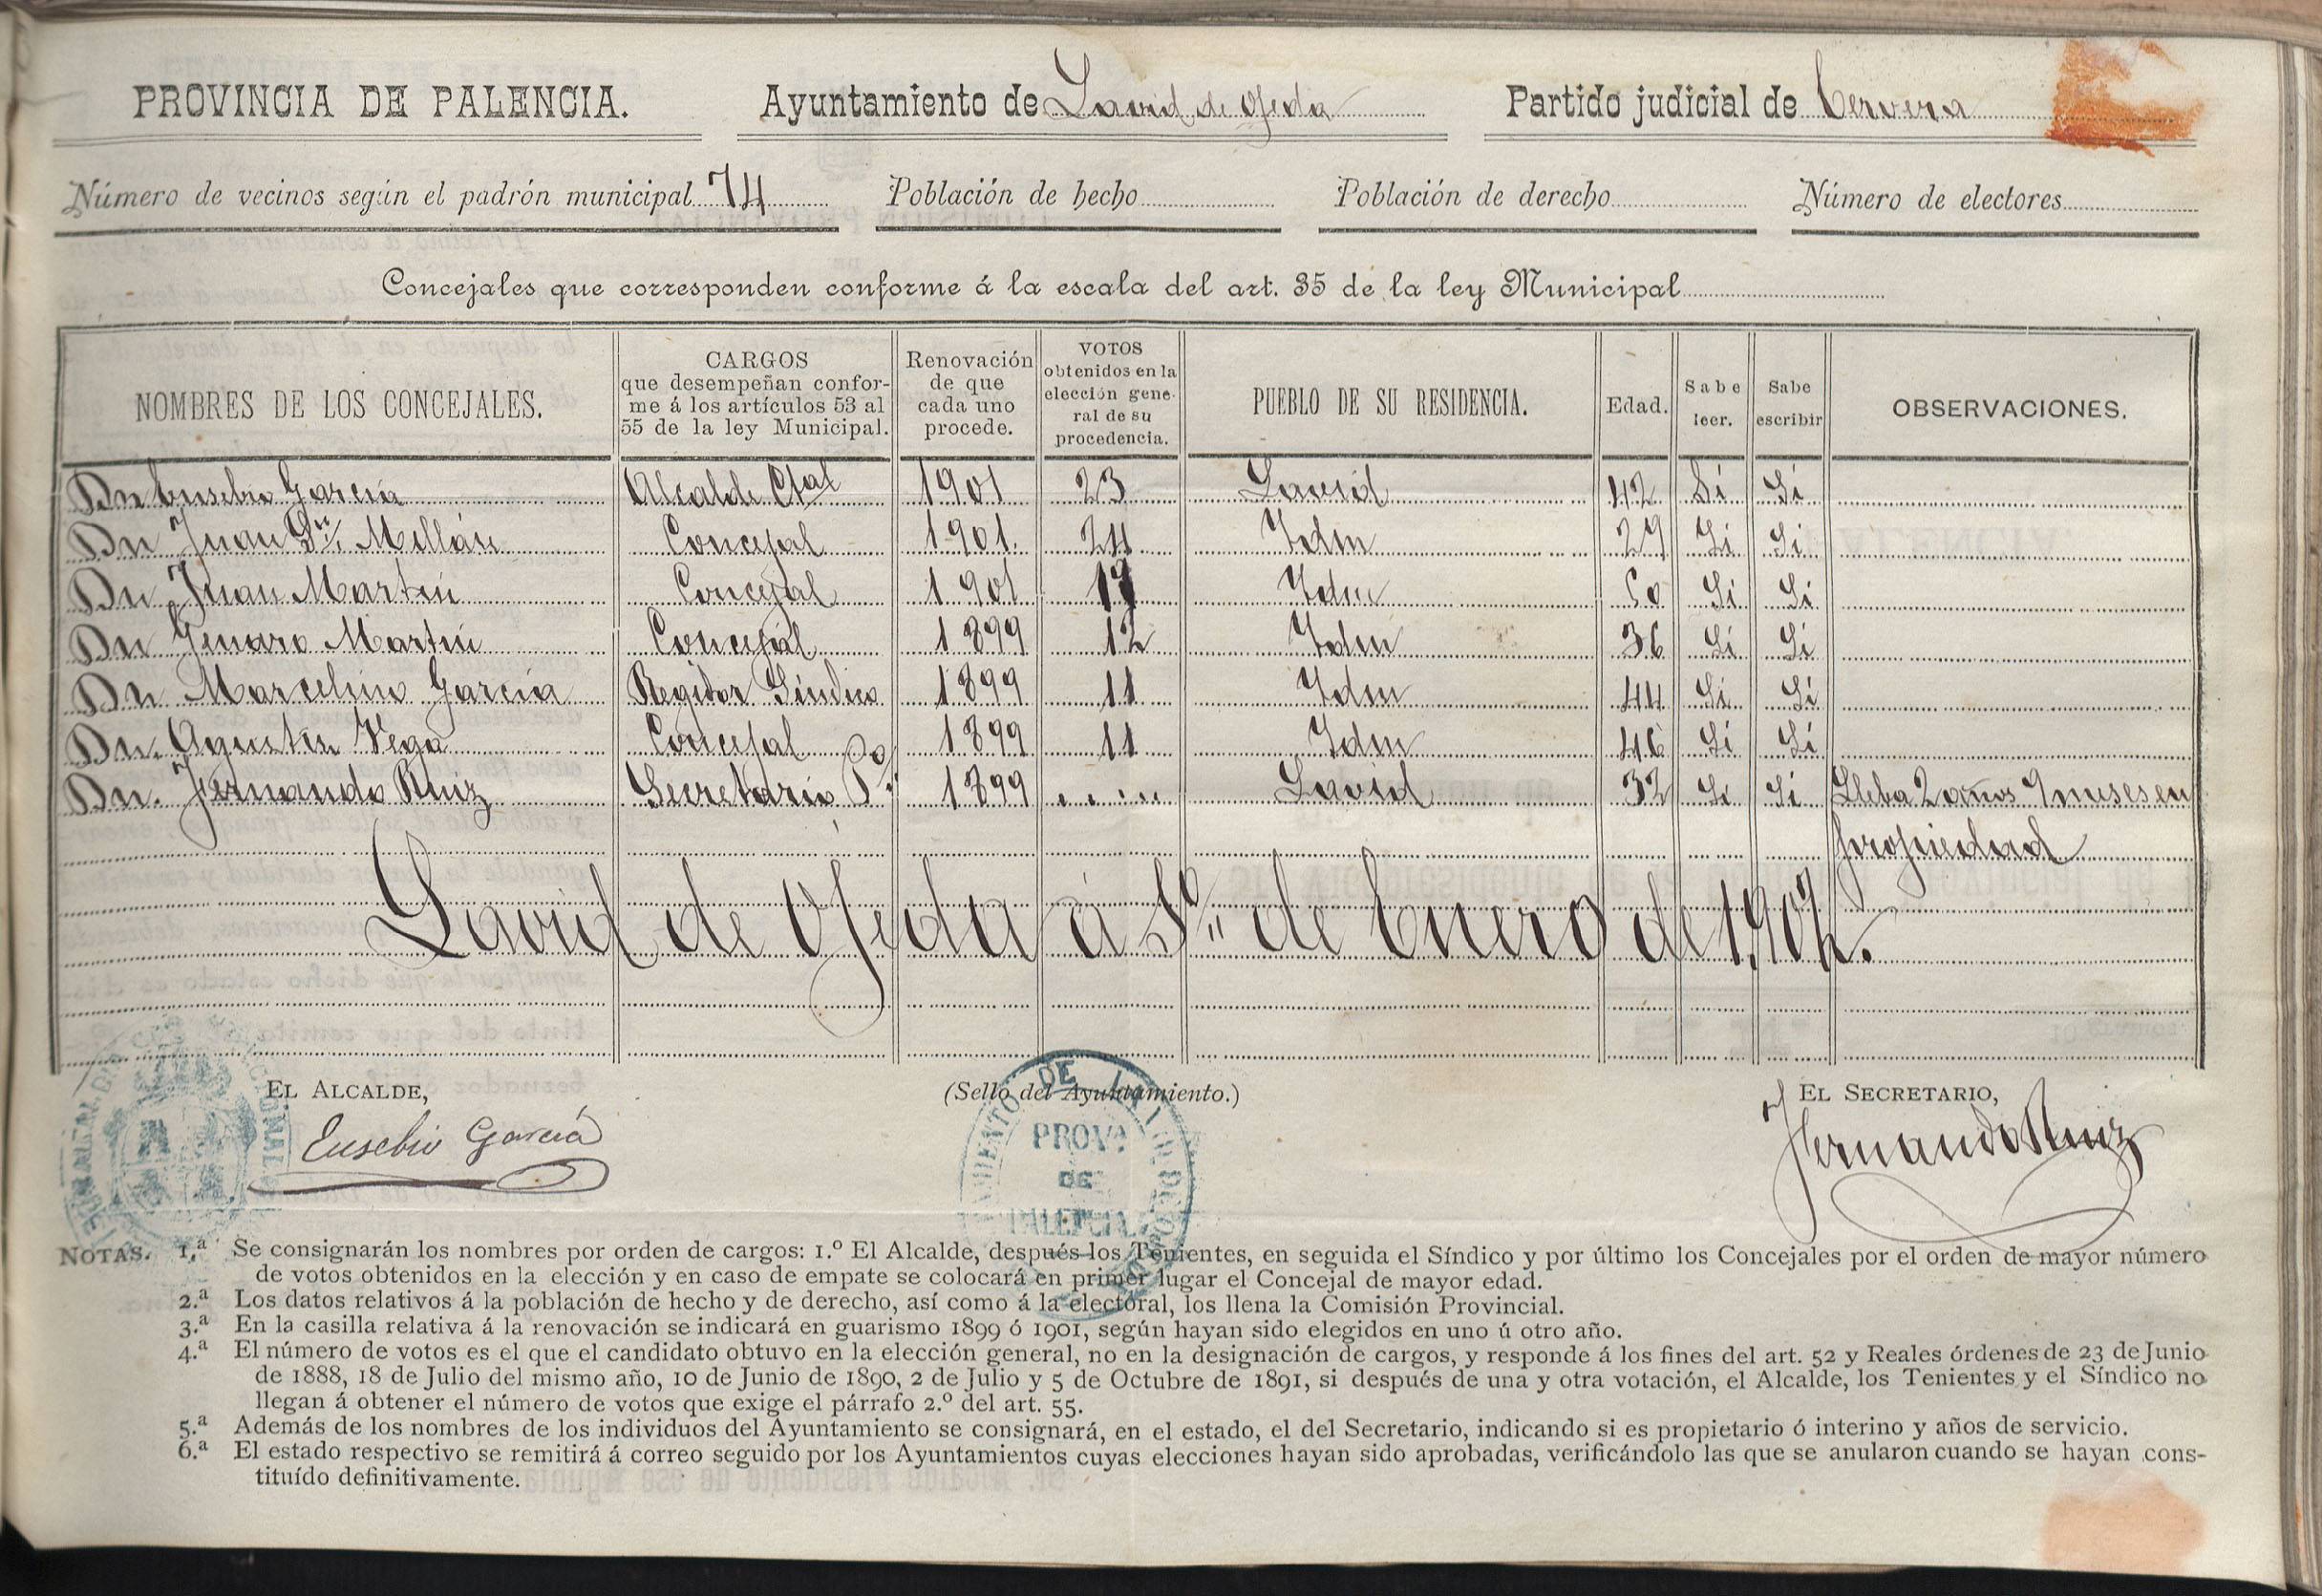 PROVINCIA DE PALENCIA. Ayuntamiento de Lavid de Ojeda Partido judicial de Cervera
Número de vecinos según el padrón municipal 74 Población de hecho Población de derecho Número de electores
Concejales que corresponden conforme á la escala del art. 35 de la ley Municipal
NOMBRES DE LOS CONCEJALES. CARGOS que desempeñan confor- me á los artículos 53 al 55 de la ley Municipal. Renovación de que cada uno procede. VOTOS obtenidos en la elección gene- ral de su procedencia. PUEBLO DE SU RESIDENCIA. Edad. Sabe leer. Sabe escribir OBSERVACIONES.
Dn Eusebio García Alcalde Ctal 1901 23 Lavid 42 Si Si
Dn Juan Millán Concejal 1901. 24 Idm 29 Si Si
Dn Juan Martín Concejal 1901 Idm 50 Si Si
Dn Genaro Martín Concejal 1899 12 Idm 36 Si Si
Dn Marcelino García Regidor Síndico 1899 11 Idm 44 Si Si
Dn. Agustín Vega Concejal 1899 11 Idm 46 Si Si
Dn. Fernando Ruiz Secretario 1899 Lavid 32 Si Si Lleba 2 años 9 meses en
propiedad
Lavid de Ojeda á de Enero de 1902.
EL ALCALDE, (Sello del Ayuntamiento.) EL SECRETARIO,
Eusebio García Fernando Ruiz
PROVA
DE
PALENCIA
NOTAS. 1.ª Se consignarán los nombres por orden de cargos: 1.º El Alcalde, después los Tenientes, en seguida el Síndico y por último los Concejales por el orden de mayor número
de votos obtenidos en la elección y en caso de empate se colocará en primer lugar el Concejal de mayor edad.
2.ª Los datos relativos á la población de hecho y de derecho, así como á la electoral, los llena la Comisión Provincial.
3.ª En la casilla relativa á la renovación se indicará en guarismo 1899 ó 1901, según hayan sido elegidos en uno ú otro año.
4.ª El número de votos es el que el candidato obtuvo en la elección general, no en la designación de cargos, y responde á los fines del art. 52 y Reales órdenes de 23 de Junio
de 1888, 18 de Julio del mismo año, 10 de Junio de 1890, 2 de Julio y 5 de Octubre de 1891, si después de una y otra votación, el Alcalde, los Tenientes y el Síndico no
llegan á obtener el número de votos que exige el párrafo 2.º del art. 55.
5.ª Además de los nombres de los individuos del Ayuntamiento se consignará, en el estado, el del Secretario, indicando si es propietario ó interino y años de servicio.
6.ª El estado respectivo se remitirá á correo seguido por los Ayuntamientos cuyas elecciones hayan sido aprobadas, verificándolo las que se anularon cuando se hayan cons-
tituído definitivamente.